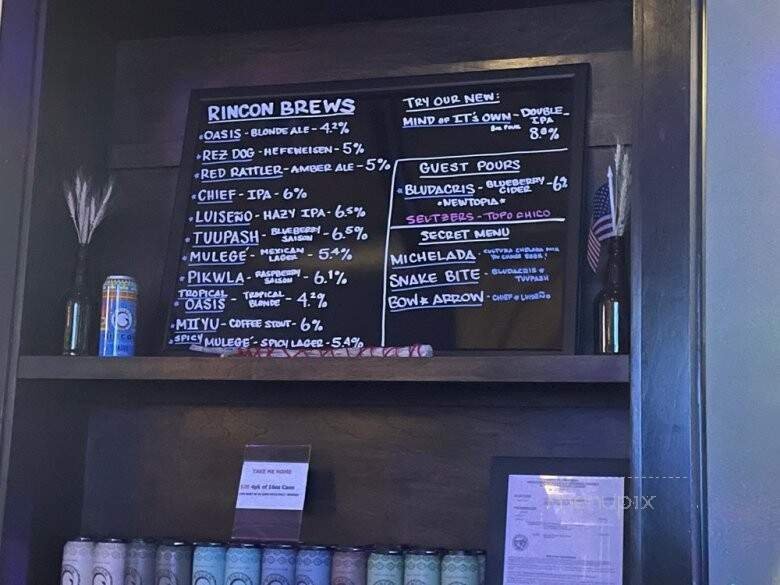 RINCON BREWS
OASIS - BLONDE ALE - 4.2%
REZ DOG - HEFEWEISEN - 5%
RED RATTLER - AMBER ALE - 5%
CHIEF - IPA - 6%
LUISEÑO - HAZY IPA - 6.5%
TUUPASH - BLUEBERRY SAISON - 6.5%
MULEGÉ - MEXICAN LAGER - 5.4%
PIKWLA - RASPBERRY SAISON - 6.1%
TROPICAL OASIS - TROPICAL BLONDE - 4.2%
MIIYU - COFFEE STOUT - 6%
SPICY MULEGÉ - SPICY LAGER - 5.4%
TRY OUR NEW:
MIND OF IT'S OWN - DOUBLE IPA
8.0%
GUEST POURS
BLUDACRIS - BLUEBERRY CIDER - 6%
*NEWTOPIA*
SELTZERS - TOPO CHICO
SECRET MENU
MICHELADA - CULTURA CHELADA MIX
YOU CHOOSE BEER!
SNAKE BITE - BLUDACRIS & TUUPASH
BOW & ARROW - CHIEF & LUISEÑO
TAKE ME HOME
4pk of 16oz Cans
menupix